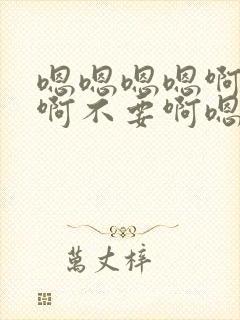 嗯嗯嗯嗯啊
啊不要啊嗯
萬丈梓